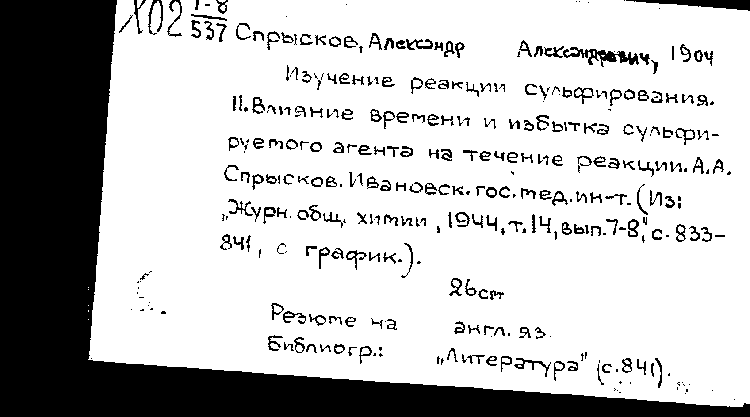 X02 7-8/537 Спрысков, Александр Александрович, 1904
Изучение реакции сульфирования.
II. Влияние времени и избытка сульфи-
руемого агента на течение реакции. А.А.
Спрысков. Ивановск. гос. мед. ин-т. (Из:
„Журн. общ. химии, 1944, т. 14, вып. 7-8", с. 833-
841, с график.).
Резюме на англ. яз.
Библиогр.: „Литература" (с. 841).